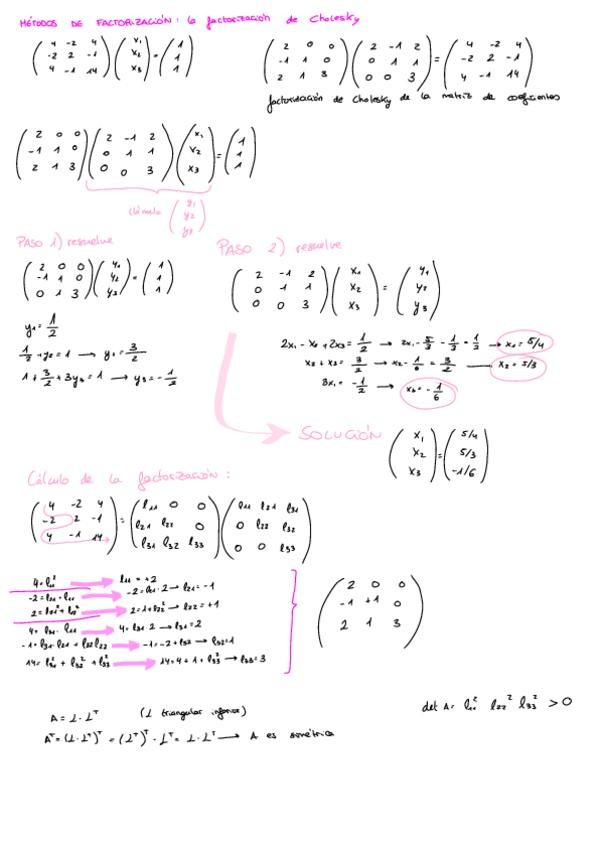 MÉTODOS DE FACTORIZACIÓN: la factorización de Cholesky
( 4 -2 4 ; -2 2 -1 ; 4 -1 14 ) ( x₁ ; x₂ ; x₃ ) = ( 1 ; 1 ; 1 )
( 2 0 0 ; -1 1 0 ; 2 1 3 ) ( 2 -1 2 ; 0 1 1 ; 0 0 3 ) = ( 4 -2 4 ; -2 2 -1 ; 4 -1 14 )
factorización de Cholesky de la matriz de coeficientes
( 2 0 0 ; -1 1 0 ; 2 1 3 ) ( 2 -1 2 ; 0 1 1 ; 0 0 3 ) ( x₁ ; x₂ ; x₃ ) = ( 1 ; 1 ; 1 )
( y₁ ; y₂ ; y₃ )
PASO 1) resuelve
( 2 0 0 ; -1 1 0 ; 0 1 3 ) ( y₁ ; y₂ ; y₃ ) = ( 1 ; 1 ; 1 )
y₁ = 1/2
1/2 + y₂ = 1 → y₂ = 3/2
1 + 3/2 + 3y₃ = 1 → y₃ = -1/2
PASO 2) resuelve
( 2 -1 2 ; 0 1 1 ; 0 0 3 ) ( x₁ ; x₂ ; x₃ ) = ( y₁ ; y₂ ; y₃ )
2x₁ - x₂ + 2x₃ = 1/2 → 2x₁ - 5/3 - 1/3 = 1/2 → x₁ = 5/4
x₂ + x₃ = 3/2 → x₂ - 1/6 = 3/2 → x₂ = 5/3
3x₃ = -1/2 → x₃ = -1/6
SOLUCIÓN ( x₁ ; x₂ ; x₃ ) = ( 5/4 ; 5/3 ; -1/6 )
Cálculo de la factorización:
( 4 -2 4 ; -2 2 -1 ; 4 -1 14 ) = ( l₁₁ 0 0 ; l₂₁ l₂₂ 0 ; l₃₁ l₃₂ l₃₃ ) ( l₁₁ l₂₁ l₃₁ ; 0 l₂₂ l₃₂ ; 0 0 l₃₃ )
4 = l₁₁² → l₁₁ = +2
-2 = l₂₁ · l₁₁ → -2 = l₂₁ · 2 → l₂₁ = -1
2 = l₂₁² + l₂₂² → 2 = 1 + l₂₂² → l₂₂ = +1
4 = l₃₁ · l₁₁ → 4 = l₃₁ · 2 → l₃₁ = 2
-1 = l₃₁ · l₂₁ + l₃₂ l₂₂ → -1 = -2 + l₃₂ → l₃₂ = 1
14 = l₃₁² + l₃₂² + l₃₃² → 14 = 4 + 1 + l₃₃² → l₃₃ = 3
( 2 0 0 ; -1 +1 0 ; 2 1 3 )
A = L · Lᵀ (L triangular inferior)
Aᵀ = (L · Lᵀ)ᵀ = (Lᵀ)ᵀ · Lᵀ = L · Lᵀ → A es simétrica
det A = l₁₁² l₂₂² l₃₃² > 0